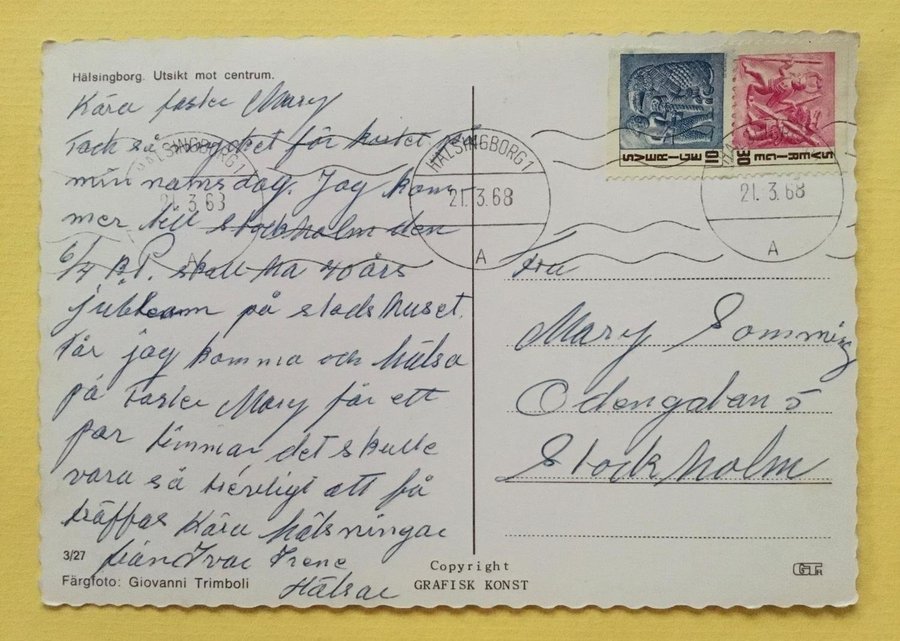 Hälsingborg. Utsikt mot centrum.
Kära faster Mary
Tack så mycket för kortet på
min namsdag. Jag kom
mer till Stockholm den
6/4 skall ha 40 års
jubileum på stadshuset.
Får jag komma och hälsa
på Faster Mary för ett
par timmar det skulle
vara så trevligt att få
träffas Kära hälsningar
från Ivar Irene
Hälsar
3/27
Färgfoto: Giovanni Trimboli
Copyright
GRAFISK KONST
HÄLSINGBORG 1
21. 3. 68
A
HÄLSINGBORG 1
21. 3. 68
A
21. 3. 68
A
SVERIGE 10
SVERIGE 30
Fru
Mary Somming
Odengatan 5
Stockholm